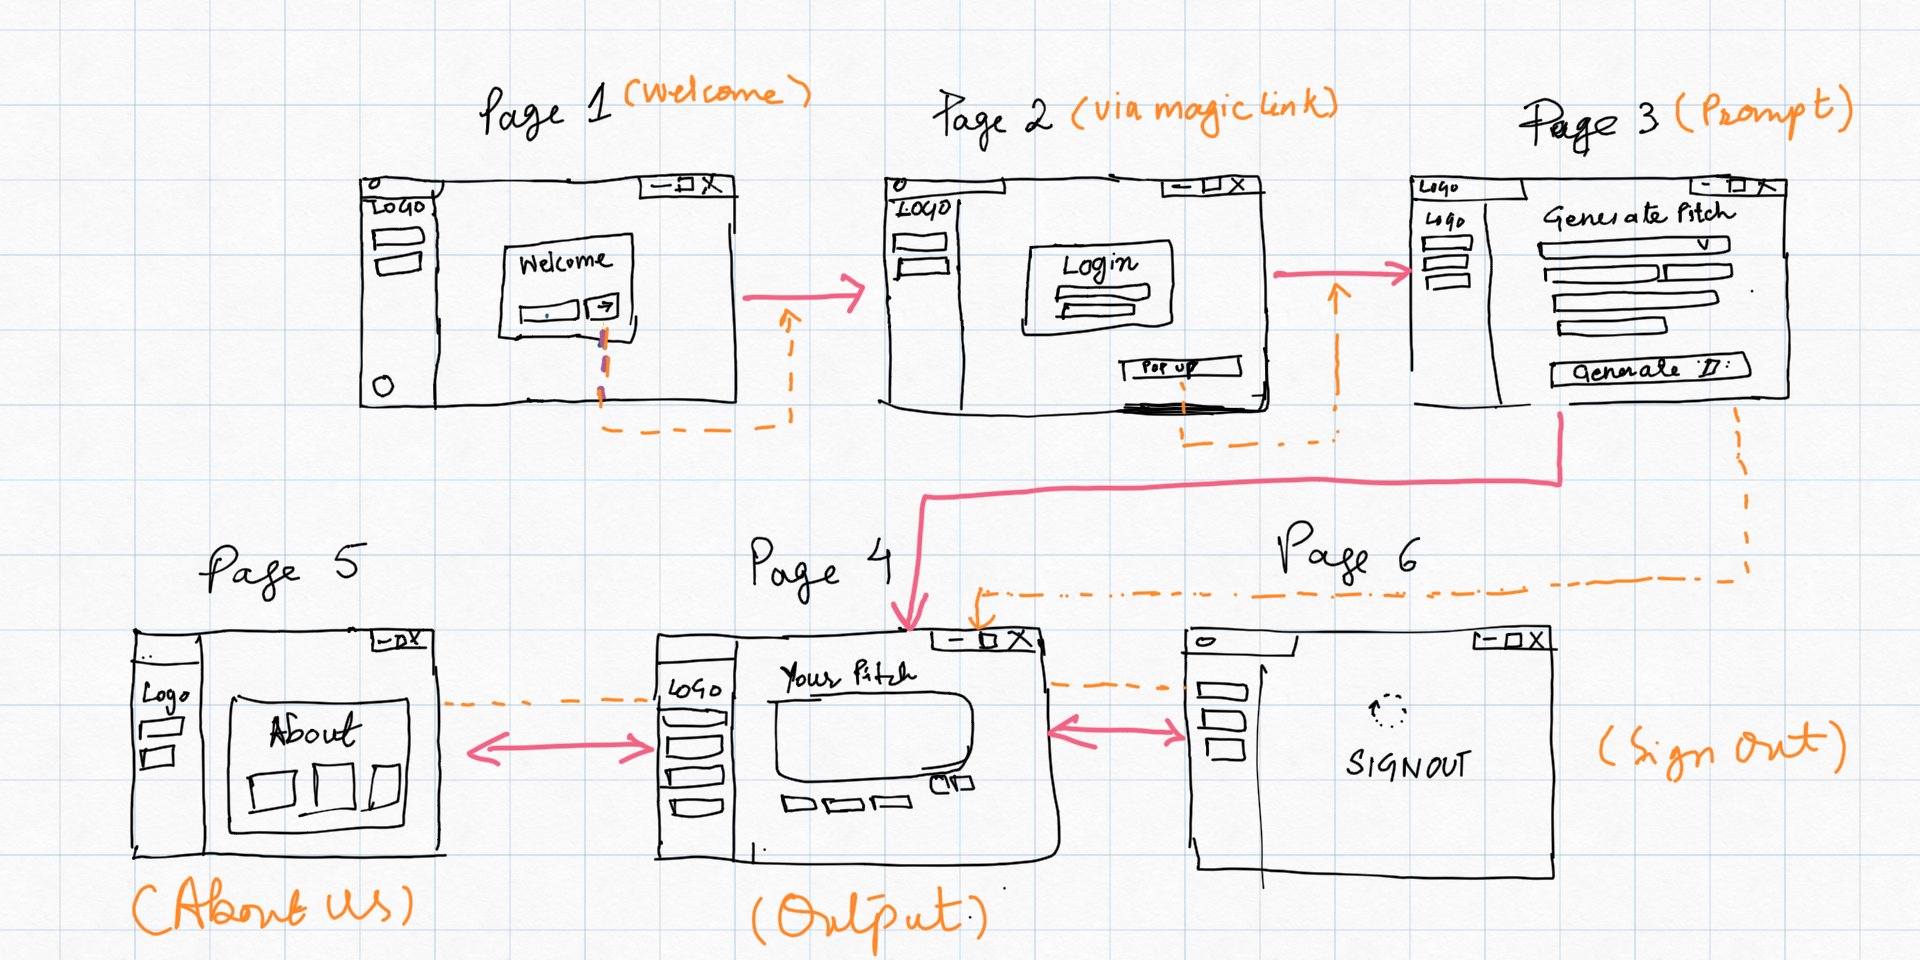 Page 1 (Welcome)
LOGO
Welcome
Page 2 (via magic link)
LOGO
Login
POP UP
Page 3 (Prompt)
Logo
Logo
Generate Pitch
Generate
Page 5
Logo
About
(About Us)
Page 4
LOGO
Your Pitch
(Output)
Page 6
SIGNOUT
(Sign Out)